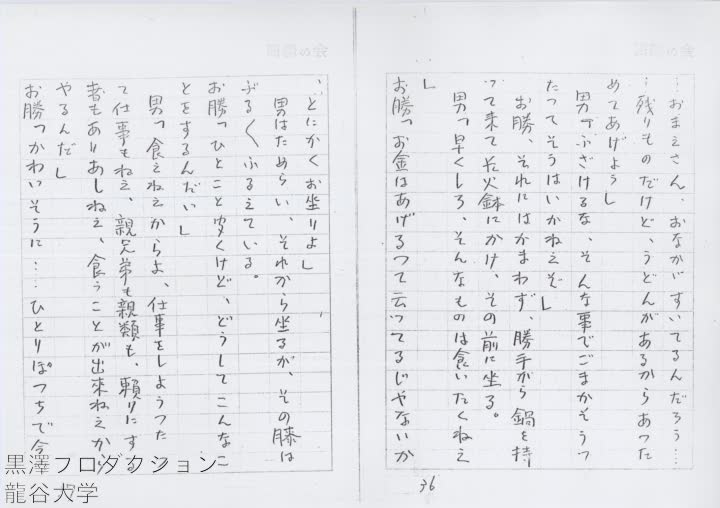 …おまえさん、おなかがすいてるんだろう…
…残りものだけど、うどんがあるからあつた
めてあげよう」
男「ふざけるな、そんな事でごまかそうつ
たつてそうはいかねえぞ」
お勝、それにはかまわず、勝手から鍋を持
って来て長火鉢にかけ、その前に坐る。
男「早くしろ、そんなものは食いたくねえ
」
お勝「お金はあげるつて云つてるじやないか
36
、とにかくお坐りよ」
男はためらい、それから坐るが、その膝は
ぶる〱ふるえている。
お勝「ひとこと聞くけど、どうしてこんなこ
とをするんだい」
男「食えねえからよ、仕事をしようつた
て仕事もねえ、親兄弟も親類も、頼りにする
者もありあしねえ、食うことが出来ねえから
やるんだ」
お勝「かわいそうに……ひとりぽつちで今
黒澤プロダクション
龍谷大学